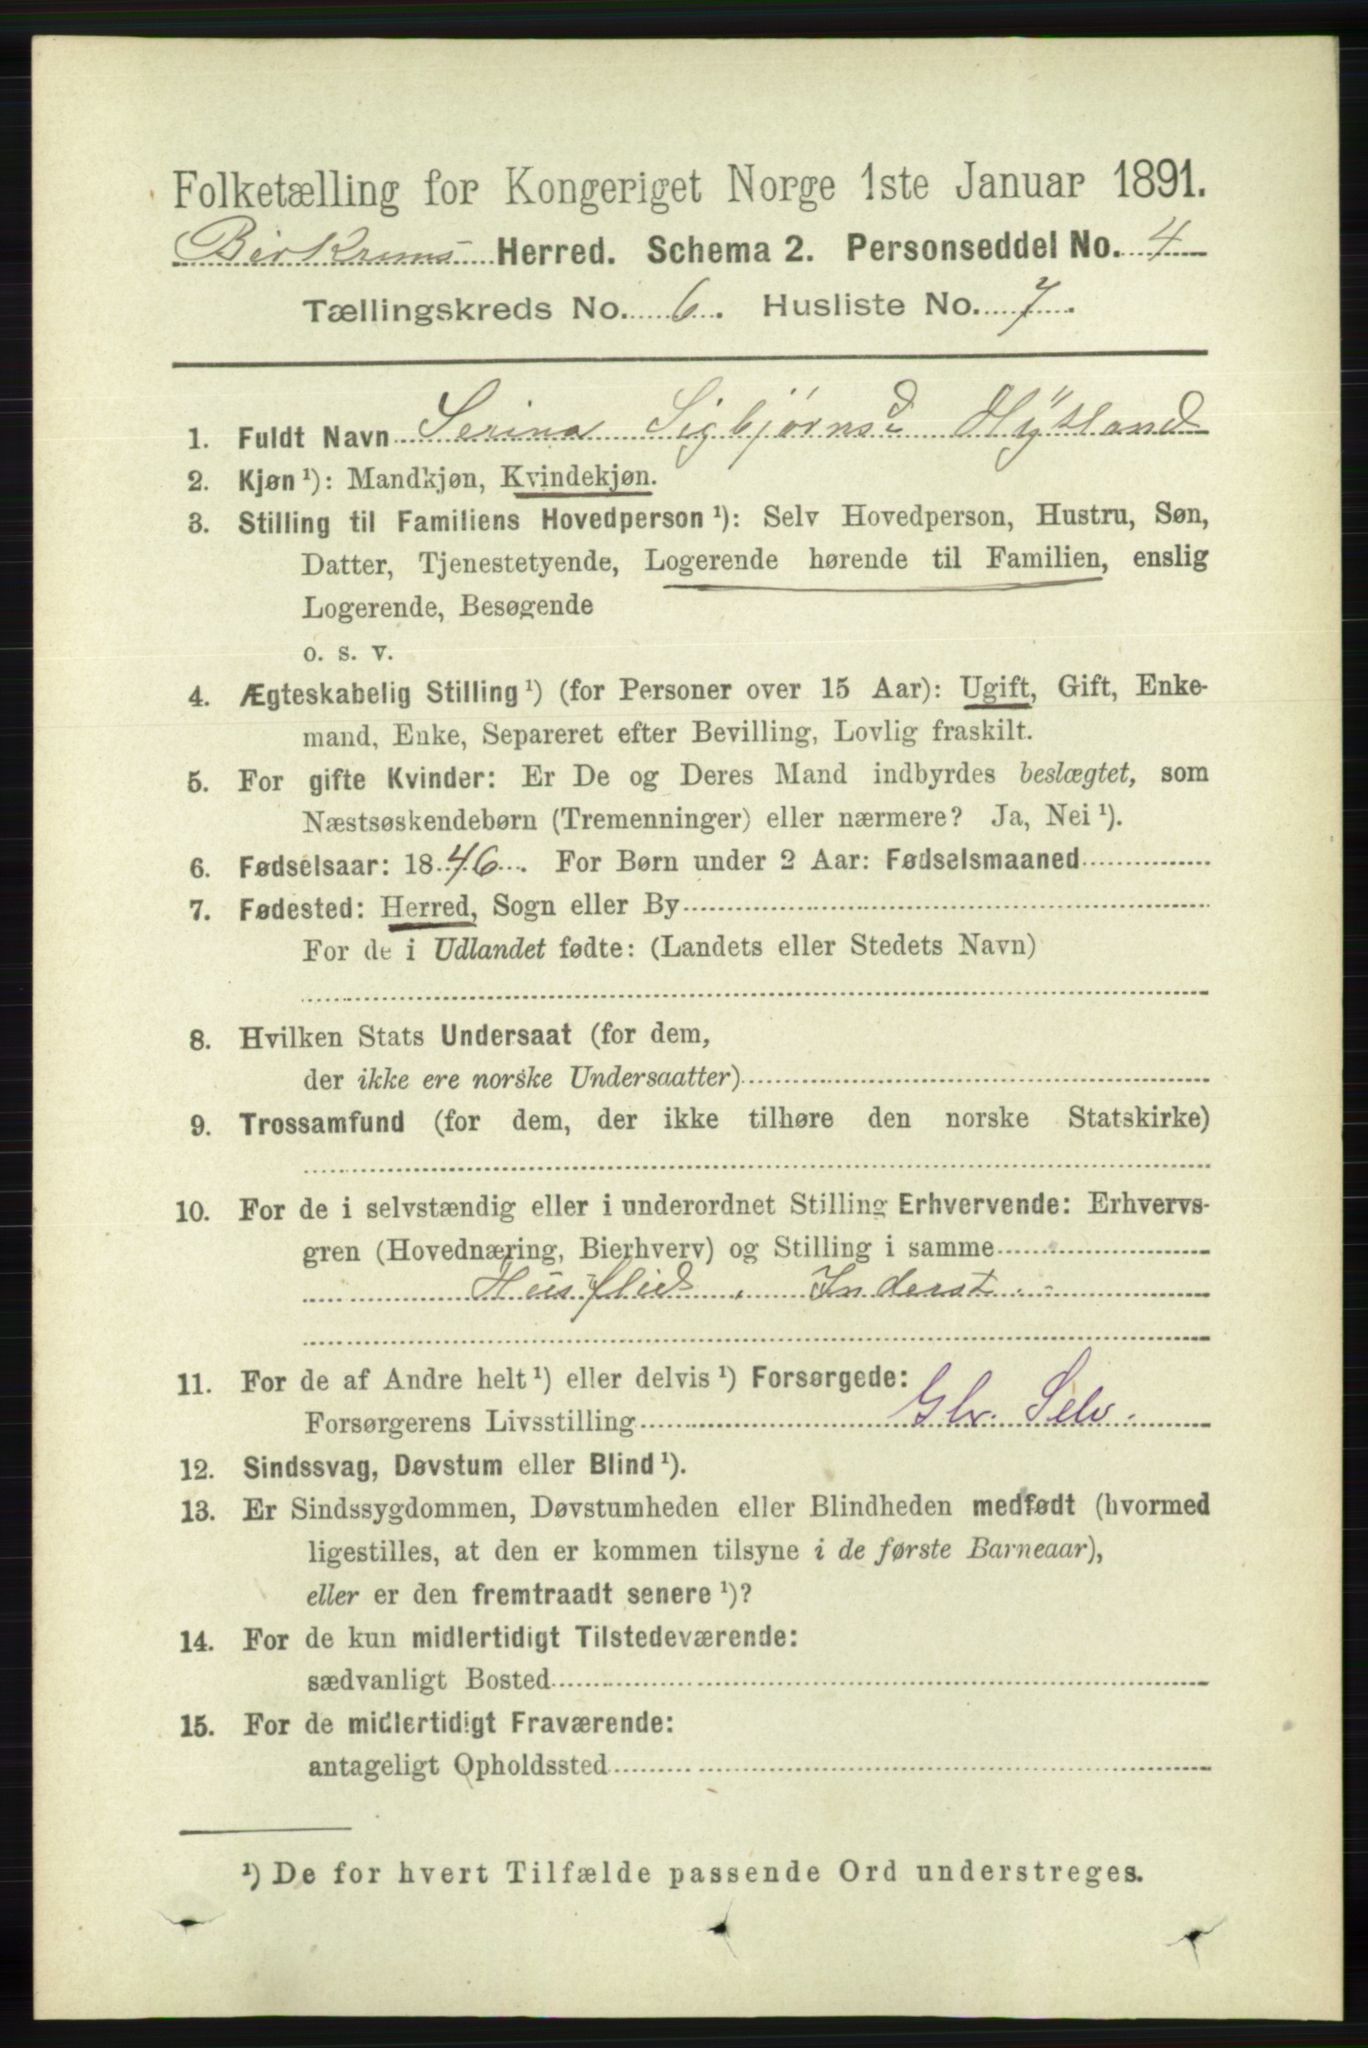 Folketælling for Kongeriget Norge 1ste Januar 1891.
Birkrems Herred. Schema 2. Personseddel No. 4
Tællingskreds No. 6. Husliste No. 7.
1. Fuldt Navn Serina Sigbjørnsd Hÿtland
2. Kjøn ¹): Mandkjøn, Kvindekjøn.
3. Stilling til Familiens Hovedperson ¹): Selv Hovedperson, Hustru, Søn,
Datter, Tjenestetyende, Logerende hørende til Familien, enslig
Logerende, Besøgende
o. s. v.
4. Ægteskabelig Stilling ¹) (for Personer over 15 Aar): Ugift, Gift, Enke-
mand, Enke, Separeret efter Bevilling, Lovlig fraskilt.
5. For gifte Kvinder: Er De og Deres Mand indbyrdes beslægtet, som
Næstsøskendebørn (Tremenninger) eller nærmere? Ja, Nei ¹).
6. Fødselsaar: 1846. For Børn under 2 Aar: Fødselsmaaned
7. Fødested: Herred, Sogn eller By
For de i Udlandet fødte: (Landets eller Stedets Navn)
8. Hvilken Stats Undersaat (for dem,
der ikke ere norske Undersaatter)
9. Trossamfund (for dem, der ikke tilhøre den norske Statskirke)
10. For de i selvstændig eller i underordnet Stilling Erhvervende: Erhvervs-
gren (Hovednæring, Bierhverv) og Stilling i samme
Husflid. Inderst.
11. For de af Andre helt ¹) eller delvis ¹) Forsørgede:
Forsørgerens Livsstilling Glv. Selv.
12. Sindssvag, Døvstum eller Blind ¹).
13. Er Sindssygdommen, Døvstumheden eller Blindheden medfødt (hvormed
ligestilles, at den er kommen tilsyne i de første Barneaar),
eller er den fremtraadt senere ¹)?
14. For de kun midlertidigt Tilstedeværende:
sædvanligt Bosted
15. For de midlertidigt Fraværende:
antageligt Opholdssted
¹) De for hvert Tilfælde passende Ord understreges.